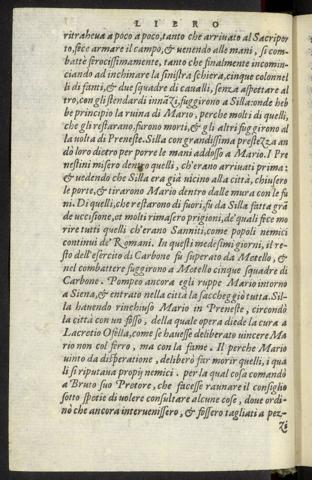 LIBRO
ritraheua a poco a poco, tanto che arriuato al Sacripor
to, fece armare il campo, & uenendo alle mani, si com-
battè ferocissimamente, tanto che finalmente incomin-
ciando ad inchinare la sinistra schiera, cinque colonnel
li di fanti, & due squadre di caualli, senza aspettare al
tro, con gli stendardi innāzi, fuggirono a Silla: onde heb
be principio la ruina di Mario, perche molti di quelli,
che gli restarano, furono morti, & gli altri fuggirono al
la uolta di Preneste. Silla con grandissima prestezza an
dò loro dietro per porre le mani addosso a Mario. I Pre
nestini misero dentro quelli, ch'erano arriuati prima:
& uedendo che Silla era già uicino alla città, chiusero
le porte, & tirarono Mario dentro dalle mura con le fu
ni. Di quelli, che restarono di fuori, fu da Silla fatta grā
de uccisione, et molti rimasero prigioni, de' quali fece mo
rire tutti quelli ch'erano Sanniti, come popoli nemici
continui de' Romani. In questi medesimi giorni, il re-
sto dell'esercito di Carbone fu superato da Metello, &
nel combattere fuggirono a Metello cinque squadre di
Carbone. Pompeo ancora egli ruppe Mario intorno
a Siena, & entrato nella città la saccheggiò tutta. Sil-
la hauendo rinchiuso Mario in Preneste, circondò
la città con un fosso, della quale opera diede la cura a
Lucretio Ofella, come se hauesse deliberato uincere Ma
rio non col ferro, ma con la fame. Il perche Mario
uinto da disperatione, deliberò far morir quelli, i qua
li si riputaua proprij nemici. per la qual cosa comandò
a Bruto suo Pretore, che facesse raunare il consiglio
sotto spetie di uolere consultare alcune cose, doue ordi-
nò che ancora interuenissero, & fossero tagliati a pez-
zi